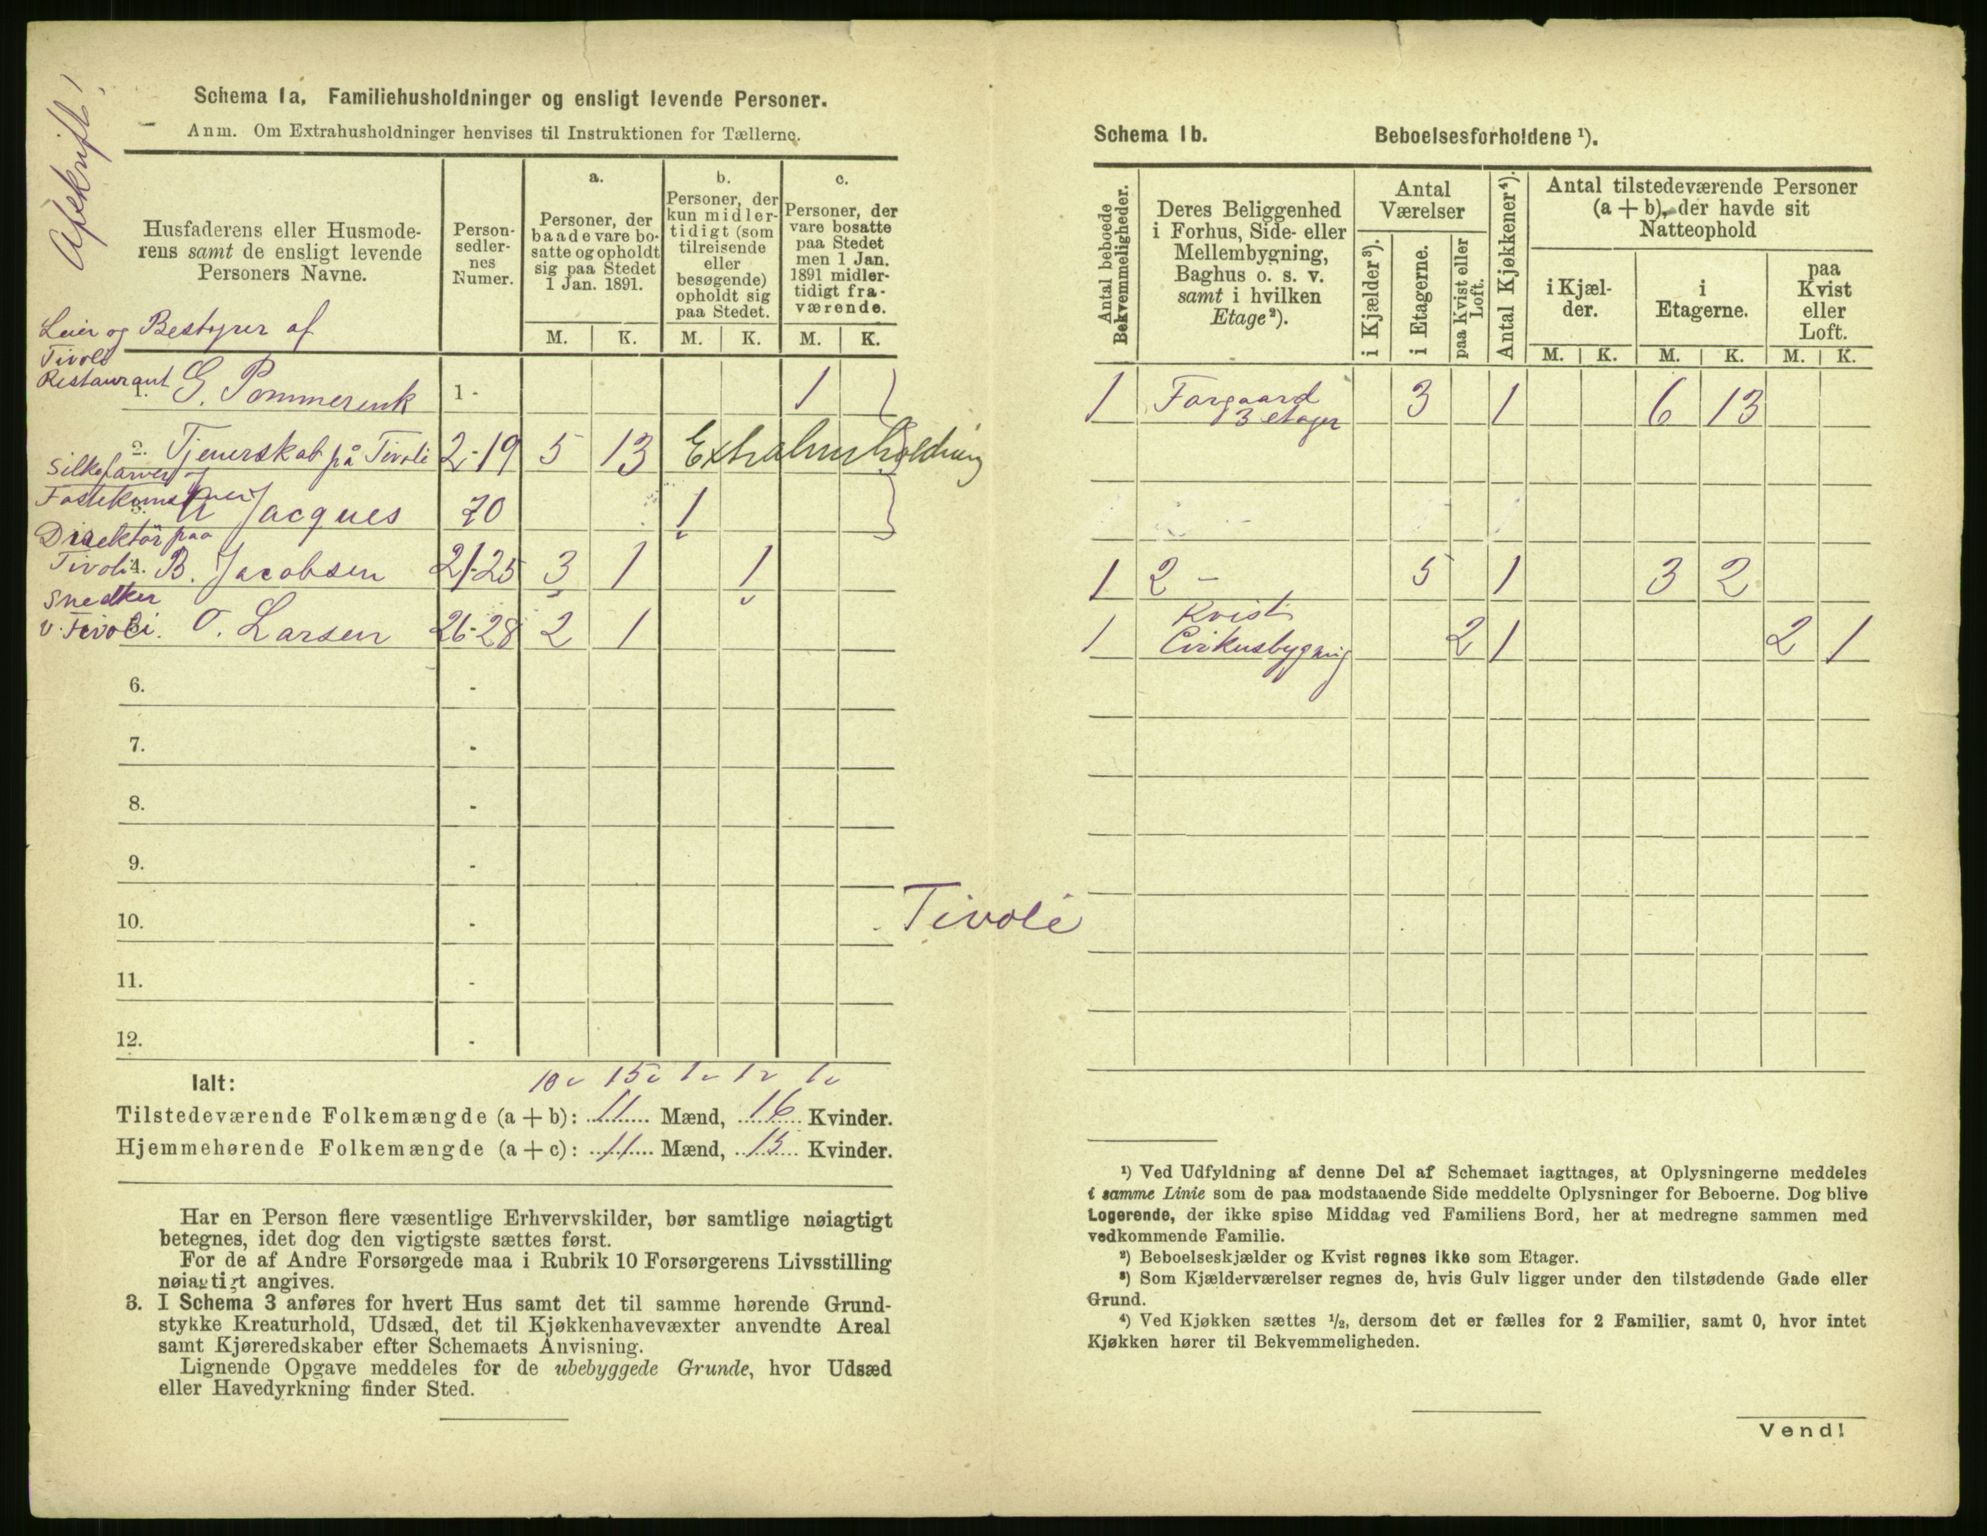 Afskrift!
Schema 1a. Familiehusholdninger og ensligt levende Personer.
Anm. Om Extrahusholdninger henvises til Instruktionen for Tællerne.
Husfaderens eller Husmode-
rens samt de ensligt levende
Personers Navne.
Person-
sedler-
nes
Numer.
a.
Personer, der
baade vare bo-
satte og opholdt
sig paa Stedet
1 Jan. 1891.
b.
Personer, der
kun midler-
tidigt (som
tilreisende
eller
besøgende)
opholdt sig
paa Stedet.
c.
Personer, der
vare bosatte
paa Stedet
men 1 Jan.
1891 midler-
tidigt fra-
værende.
M. K. M. K. M. K.
Leier og Bestyrer af
Tivoli
Restaurant
1. G. Pommerenk 1 - 1
2. Tjenerskab på Tivoli 2-19 5 13 Extrahusholdning
Silkefarver og
3. Jacques 20 1
Direktör paa
Tivoli 4. B. Jacobsen 21-25 3 1 1
Snedker
v. Tivoli. O. Larsen 26-28 2 1
6. -
7. -
8. -
9. -
10. -
11. -
12. -
Tivoli
Ialt: 10 15 1 1 1
Tilstedeværende Folkemængde (a + b): 11 Mænd, 16 Kvinder.
Hjemmehørende Folkemængde (a + c): 11 Mænd, 15 Kvinder.
Har en Person flere væsentlige Erhvervskilder, bør samtlige nøiagtigt
betegnes, idet dog den vigtigste sættes først.
For de af Andre Forsørgede maa i Rubrik 10 Forsørgerens Livsstilling
nøiagtigt angives.
3. I Schema 3 anføres for hvert Hus samt det til samme hørende Grund-
stykke Kreaturhold, Udsæd, det til Kjøkkenhavevæxter anvendte Areal
samt Kjøreredskaber efter Schemaets Anvisning.
Lignende Opgave meddeles for de ubebyggede Grunde, hvor Udsæd
eller Havedyrkning finder Sted.
Schema 1b. Beboelsesforholdene ¹).
Antal beboede
Bekvemmeligheder.
Deres Beliggenhed
i Forhus, Side- eller
Mellembygning,
Baghus o. s. v.
samt i hvilken
Etage²).
Antal
Værelser
i Kjælder³).
i Etagerne.
paa Kvist eller
Loft.
Antal Kjøkkener⁴).
Antal tilstedeværende Personer
(a + b), der havde sit
Natteophold
i Kjæl-
der.
i
Etagerne.
paa
Kvist
eller
Loft.
M. K. M. K. M. K.
1 Forgaard
3 etager 3 1 6 13
1 2 - 5 1 3 2
Kvist
1 Cirkusbygning 2 1 2 1
¹) Ved Udfyldning af denne Del af Schemaet iagttages, at Oplysningerne meddeles
i samme Linie som de paa modstaaende Side meddelte Oplysninger for Beboerne. Dog blive
Logerende, der ikke spise Middag ved Familiens Bord, her at medregne sammen med
vedkommende Familie.
²) Beboelseskjælder og Kvist regnes ikke som Etager.
³) Som Kjælderværelser regnes de, hvis Gulv ligger under den tilstødende Gade eller
Grund.
⁴) Ved Kjøkken sættes ½, dersom det er fælles for 2 Familier, samt 0, hvor intet
Kjøkken hører til Bekvemmeligheden.
Vend!